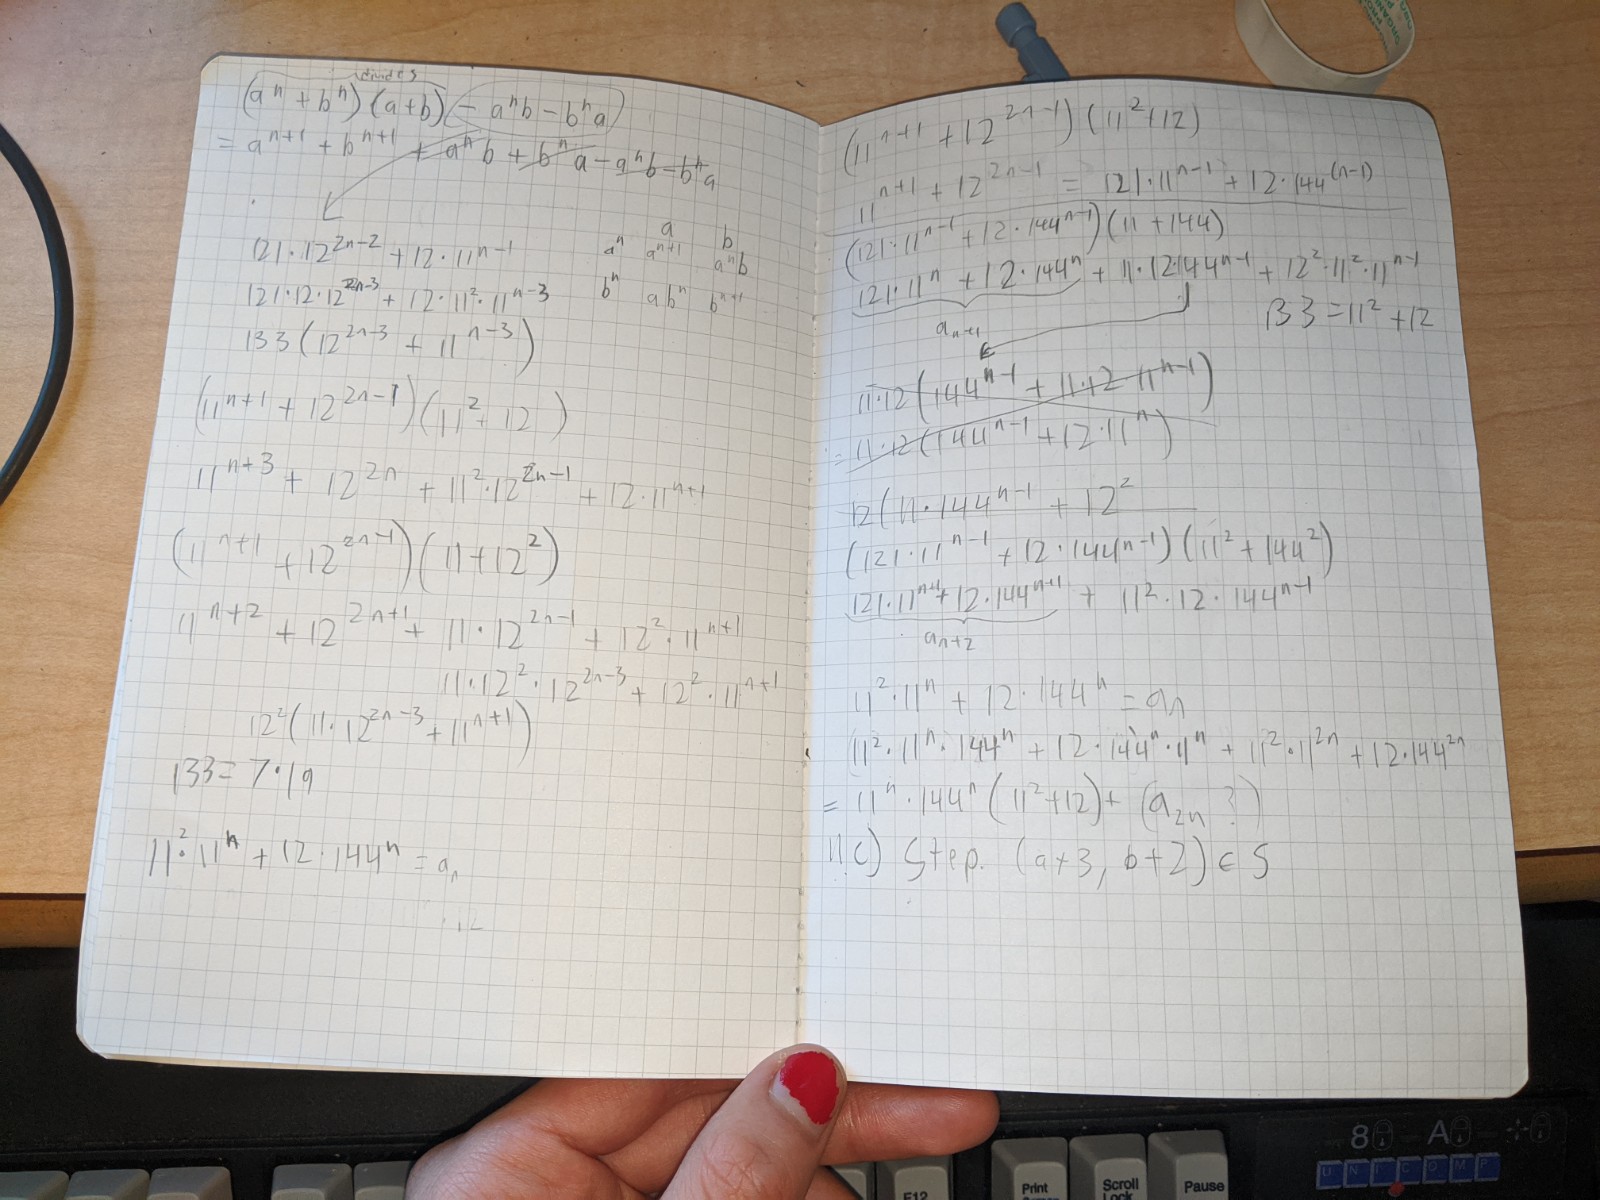 divides
(aⁿ + bⁿ)(a+b) - aⁿb - bⁿa
= aⁿ⁺¹ + bⁿ⁺¹ + aⁿb + bⁿa - aⁿb - bⁿa
121·12²ⁿ⁻² + 12·11ⁿ⁻¹
a b
aⁿ aⁿ⁺¹ aⁿb
bⁿ abⁿ bⁿ⁺¹
121·12·12²ⁿ⁻³ + 12·11²·11ⁿ⁻³
133(12²ⁿ⁻³ + 11ⁿ⁻³)
(11ⁿ⁺¹ + 12²ⁿ⁻¹)(11² + 12)
11ⁿ⁺³ + 12²ⁿ + 11²·12²ⁿ⁻¹ + 12·11ⁿ⁺¹
(11ⁿ⁺¹ + 12²ⁿ⁻¹)(11+12²)
11ⁿ⁺² + 12²ⁿ⁺¹ + 11·12²ⁿ⁻¹ + 12²·11ⁿ⁺¹
11·12²·12²ⁿ⁻³ + 12²·11ⁿ⁺¹
12²(11·12²ⁿ⁻³ + 11ⁿ⁺¹)
133 = 7·19
11²·11ⁿ + 12·144ⁿ = aₙ
12
(11ⁿ⁺¹ + 12²ⁿ⁻¹)(11²+12)
11ⁿ⁺¹ + 12²ⁿ⁻¹ = 121·11ⁿ⁻¹ + 12·144⁽ⁿ⁻¹⁾
(121·11ⁿ⁻¹ + 12·144ⁿ⁻¹)(11 + 144)
121·11ⁿ + 12·144ⁿ + 11·12·144ⁿ⁻¹ + 12²·11²·11ⁿ⁻¹
aₙ₊₁
133 = 11² + 12
11·12(144ⁿ⁻¹ + 11·12·11ⁿ⁻¹)
= 11·12(144ⁿ⁻¹ + 12·11ⁿ)
12(11·144ⁿ⁻¹ + 12²
(121·11ⁿ⁻¹ + 12·144ⁿ⁻¹)(11² + 144²)
121·11ⁿ⁺¹ + 12·144ⁿ⁺¹ + 11²·12·144ⁿ⁻¹
aₙ₊₂
11²·11ⁿ + 12·144ⁿ = aₙ
11²·11ⁿ·144ⁿ + 12·144ⁿ·11ⁿ + 11²·11²ⁿ + 12·144²ⁿ
= 11ⁿ·144ⁿ(11²+12) + (a₂ₙ ?)
11c) Step. (a+3, b+2) ∈ S
8 A
U N I C O M P
F12
Print
Scroll
Lock
Pause